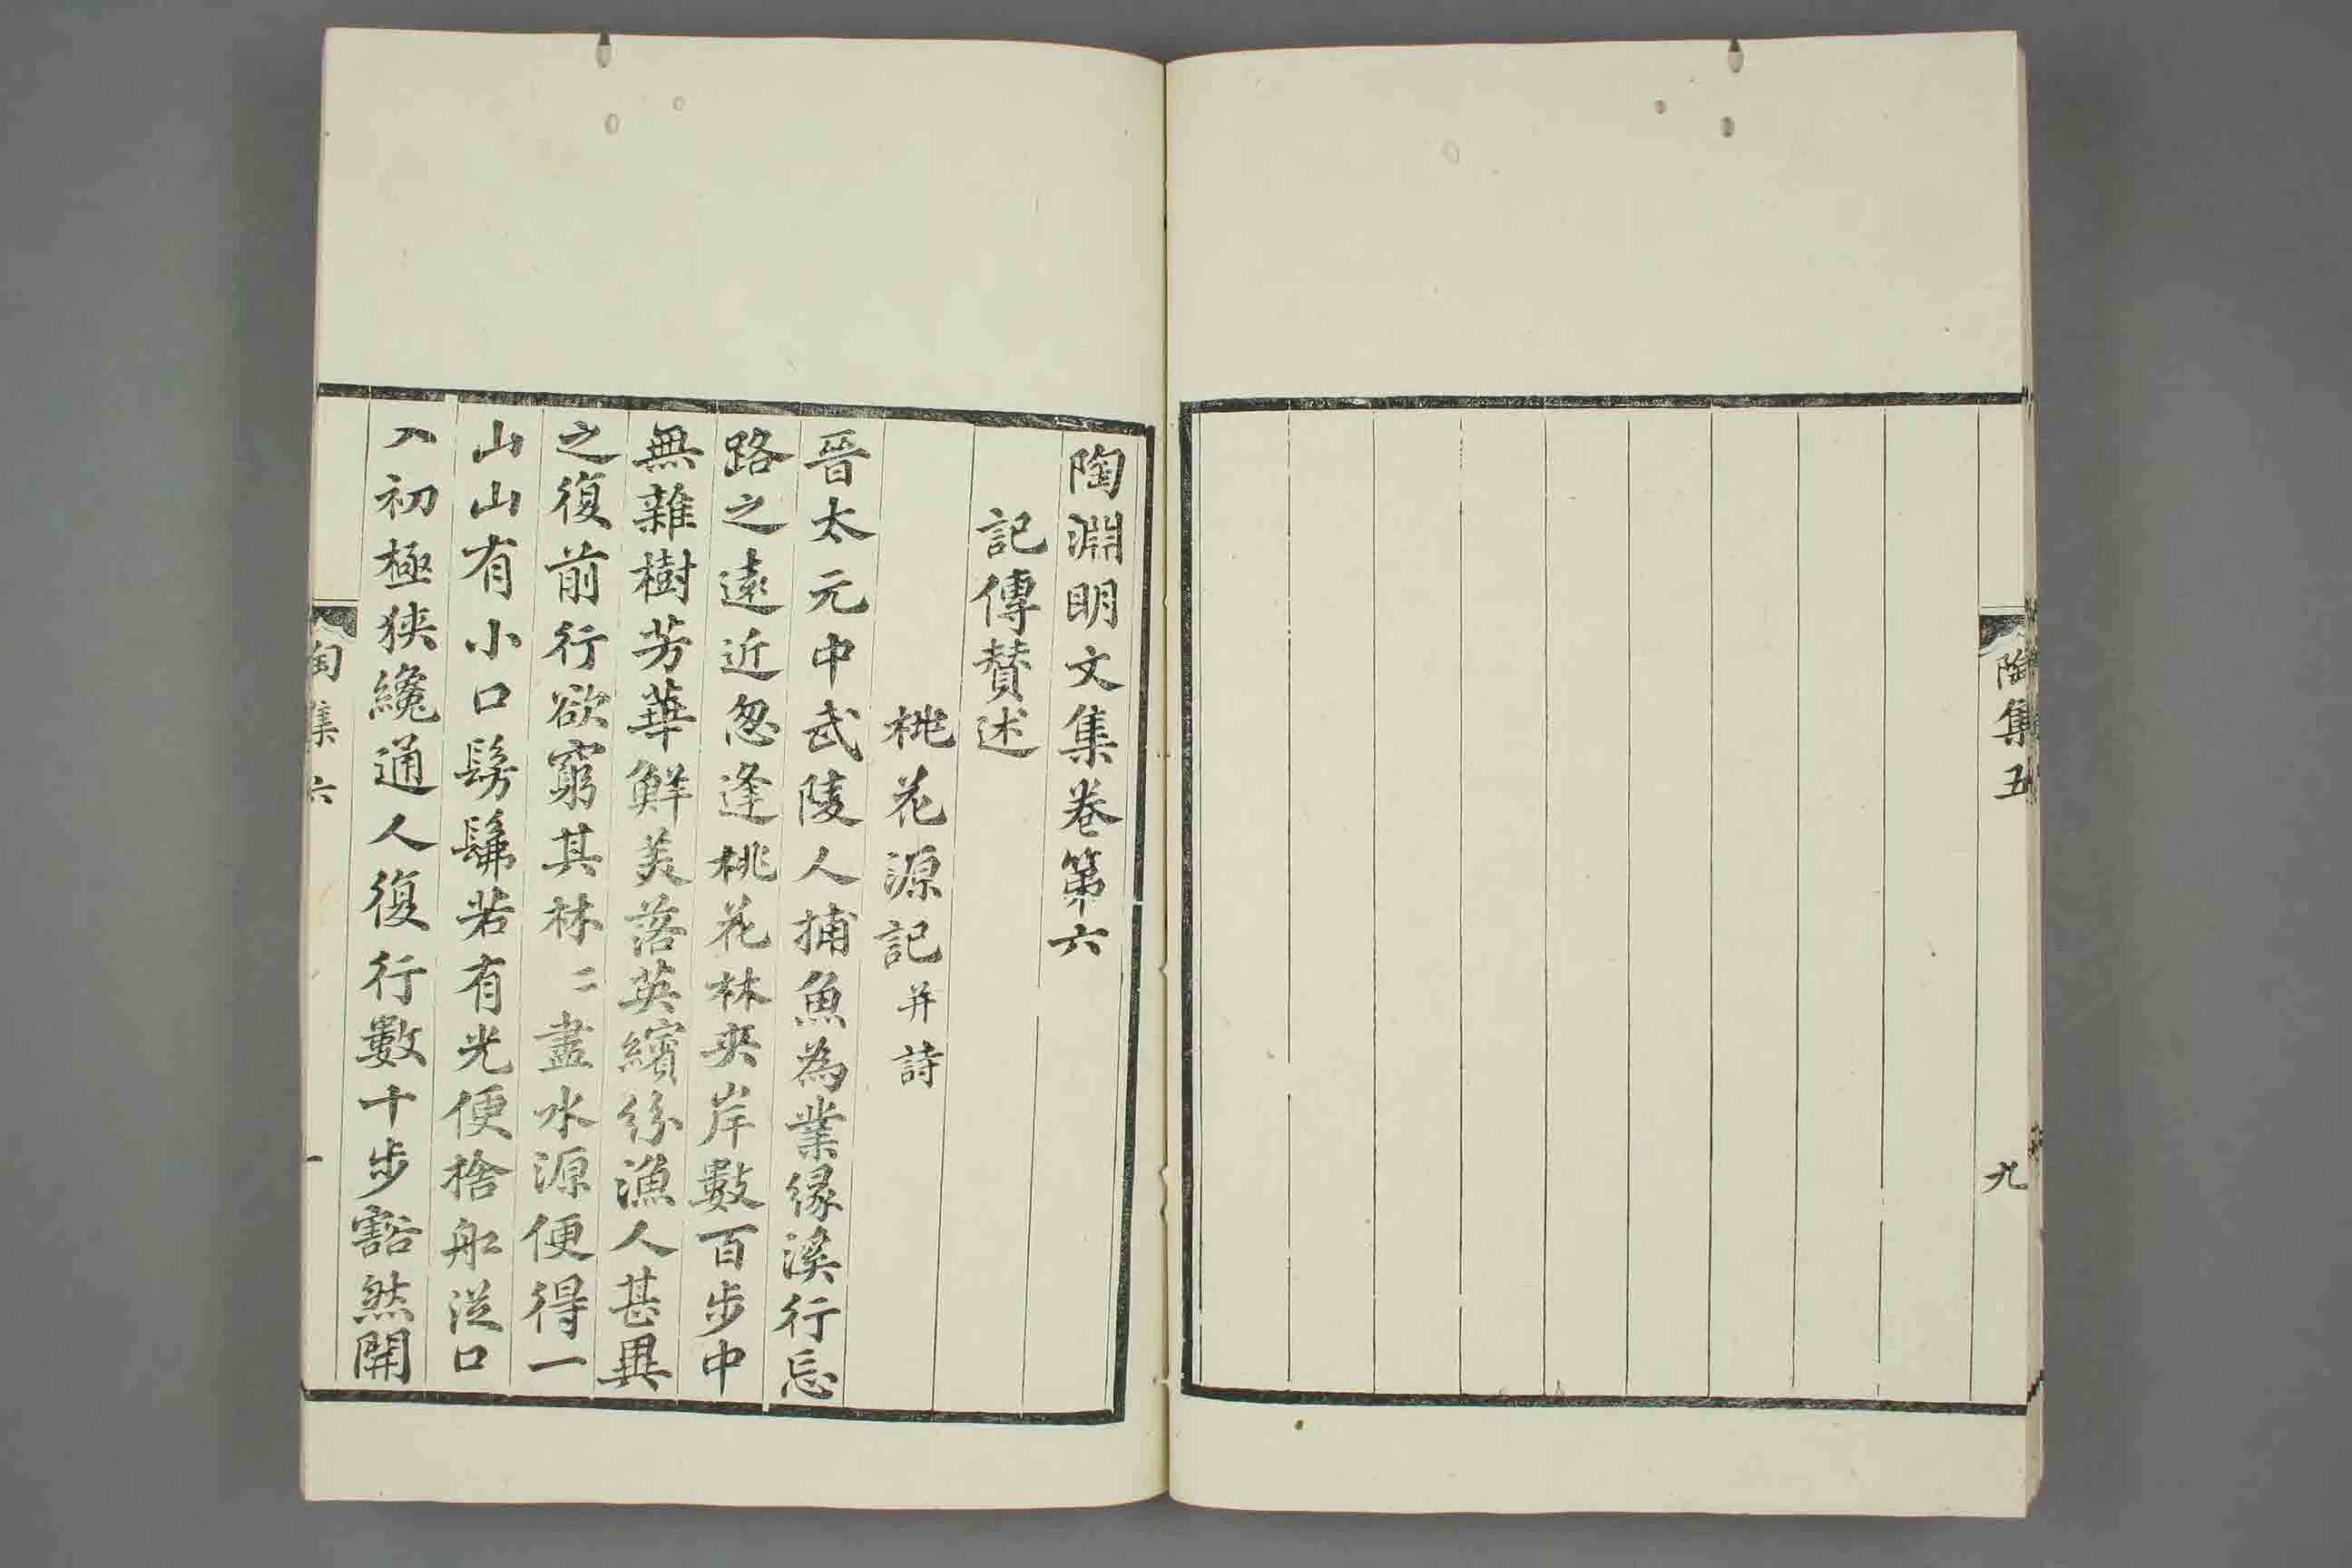 陶集五
九
陶淵明文集卷第六
記傳贊述
桃花源記并詩
晉太元中武陵人捕魚為業緣溪行忘
路之遠近忽逢桃花林夾岸數百步中
無雜樹芳華鮮美落英繽紛漁人甚異
之復前行欲窮其林〻盡水源便得一
山山有小口髣髴若有光便捨舡從口
入初極狹纔通人復行數十步豁然開
陶集六
一